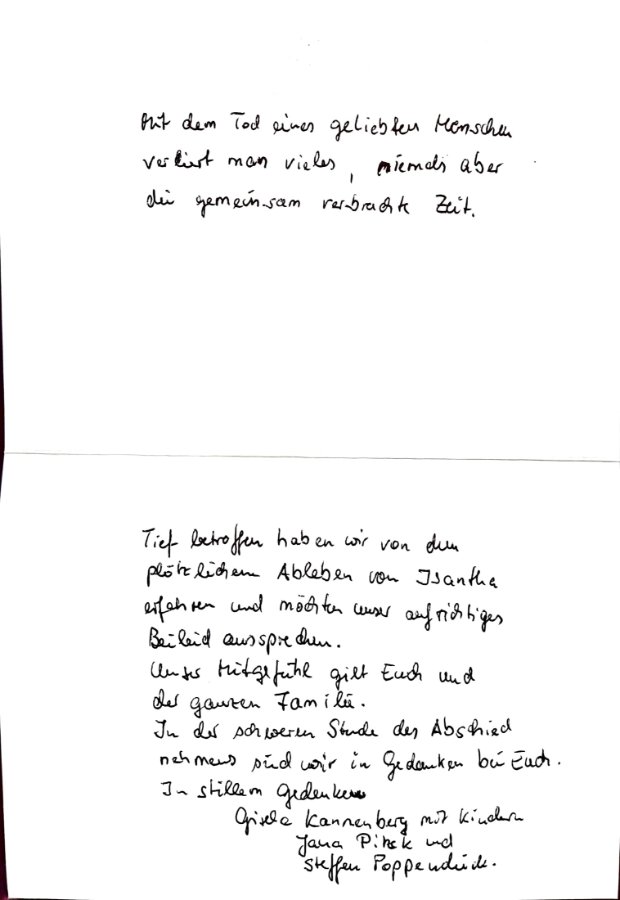 Mit dem Tod eines geliebten Menschen
verliert man vieles, niemals aber
die gemeinsam verbrachte Zeit.
Tief betroffen haben wir von dem
plötzlichem Ableben von Isantha
erfahren und möchten unser aufrichtiges
Beileid aussprechen.
Unser Mitgefühl gilt Euch und
der ganzen Familie.
In der schweren Stunde des Abschied
nehmens sind wir in Gedanken bei Euch.
In stillem Gedenken
Gisela Kannenberg mit Kindern
Jana und
Steffen